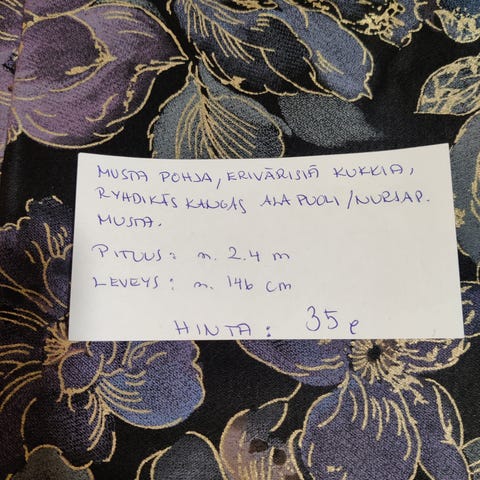 MUSTA POHJA, ERIVÄRISIÄ KUKKIA,
RYHDIKÄS KANGAS ALAPUOLI / NURJAP.
MUSTA.
PITUUS: n. 2.4 m
LEVEYS: n. 146 cm
HINTA: 35 e